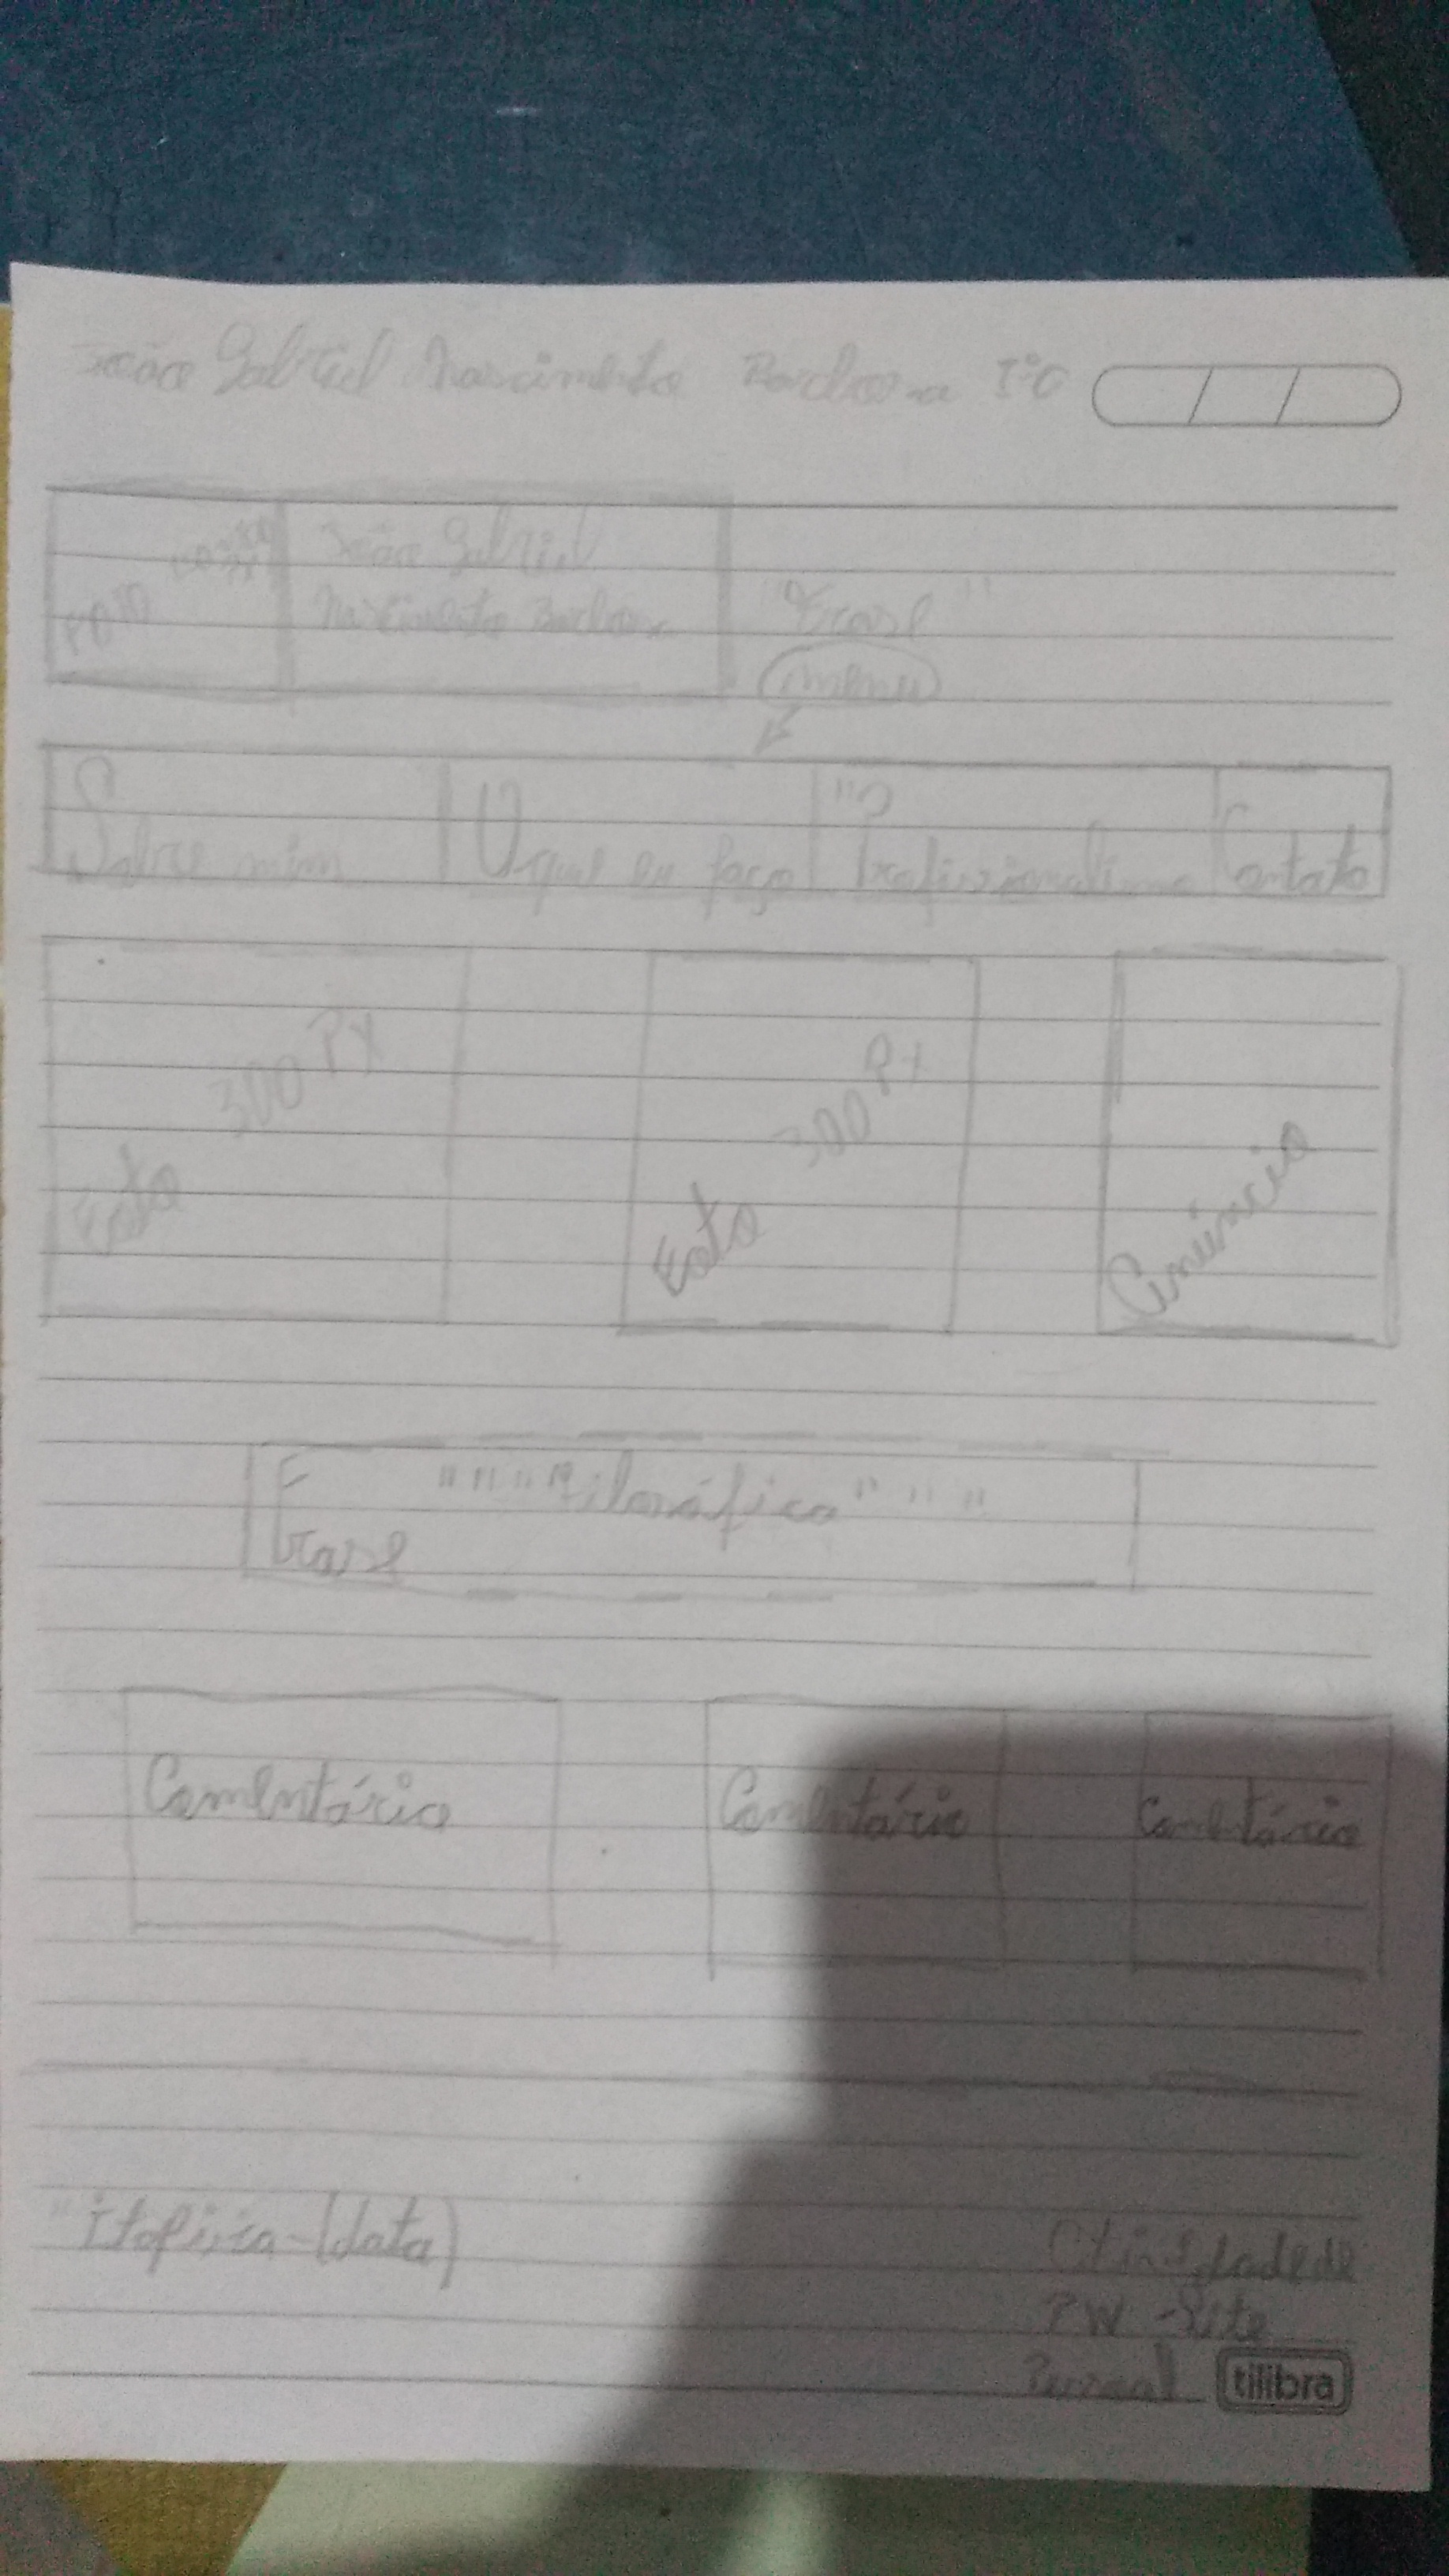 João Gabriel Nascimento Barbosa 1°C
FOTO
João Gabriel
Nascimento Barbosa
"Frase"
menu
Sobre mim
O que eu faço
"Profissionalismo
Contato
Foto 300 PX
Foto 300 PX
Anúncio
" " " "Filosófica" " "
Frase
Comentário
Comentário
Comentário
(data)
Atividade de
PW - Site
Pessoal
tilibra